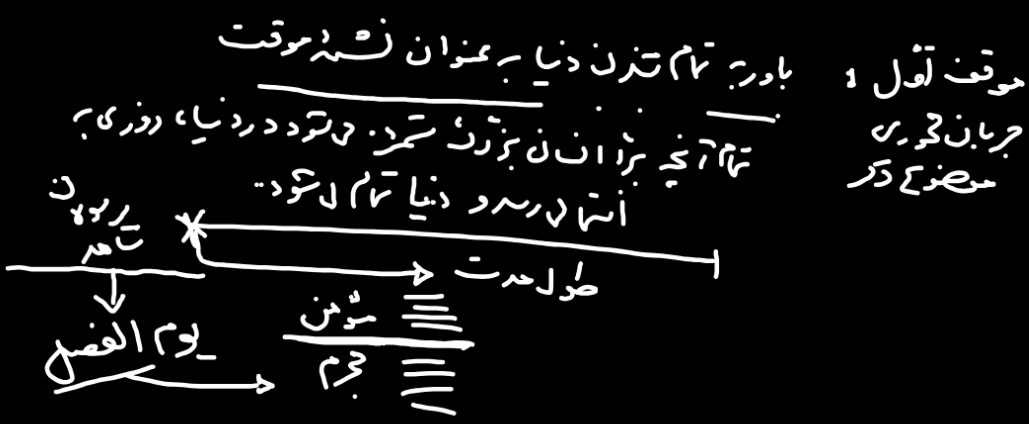 موقف اول:
جریان محوری
موضوع ذکر
باور به تمام شدن دنیا به عنوان نشئه موقت
تمام آنچه برای انسان بزرگ شمرده می‌شود در دنیا، روزی به
انتها می‌رسد و دنیا تمام می‌شود..
طول مدت
یوم الفصل
مؤمن
مجرم